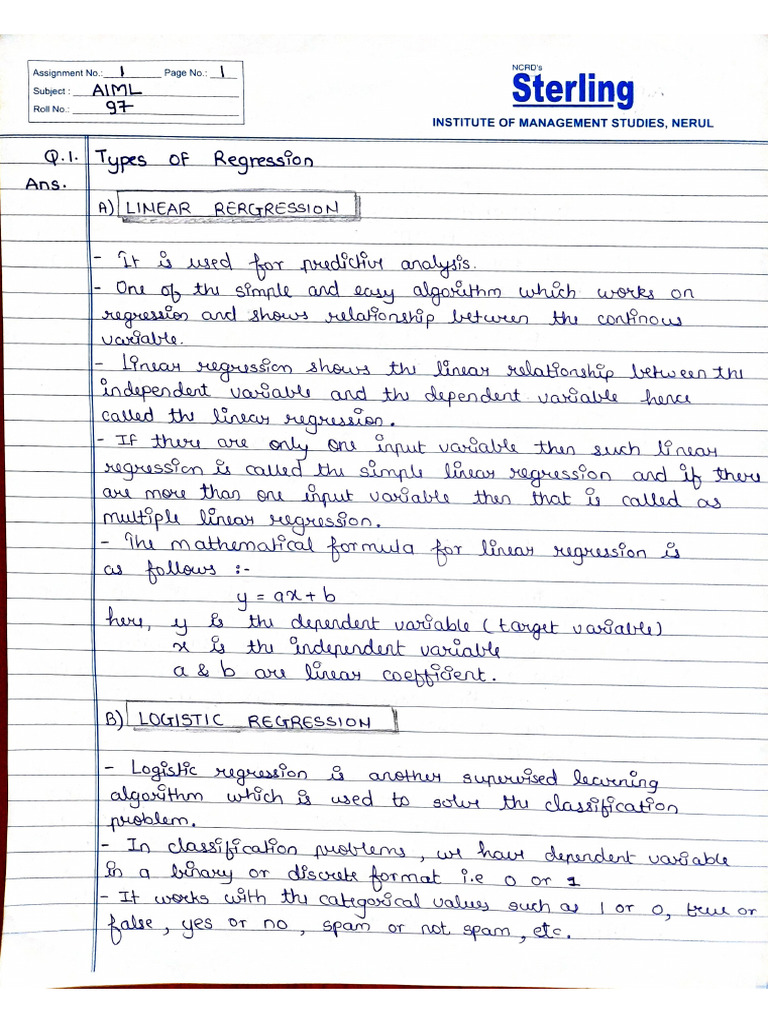 Assignment No.: 1 Page No.: 1
Subject : AIML
Roll No.: 97
NCRD's
Sterling
INSTITUTE OF MANAGEMENT STUDIES, NERUL
Q.1. Types of Regression
Ans.
A) LINEAR RERGRESSION
- It is used for predictive analysis.
- One of the simple and easy algorithm which works on
regression and shows relationship between the continous
variable.
- Linear regression shows the linear relationship between the
independent variable and the dependent variable hence
called the linear regression.
- If there are only one input variable then such linear
regression is called the simple linear regression and if there
are more than one input variable then that is called as
multiple linear regression.
- The mathematical formula for linear regression is
as follows :-
y = ax + b
here, y is the dependent variable (target variable)
x is the independent variable
a & b are linear coefficient.
B) LOGISTIC REGRESSION
- Logistic regression is another supervised learning
algorithm which is used to solve the classification
problem.
- In classification problems, we have dependent variable
in a binary or discrete format i.e 0 or 1
- It works with the categorical values such as 1 or 0, true or
false, yes or no, spam or not spam, etc.